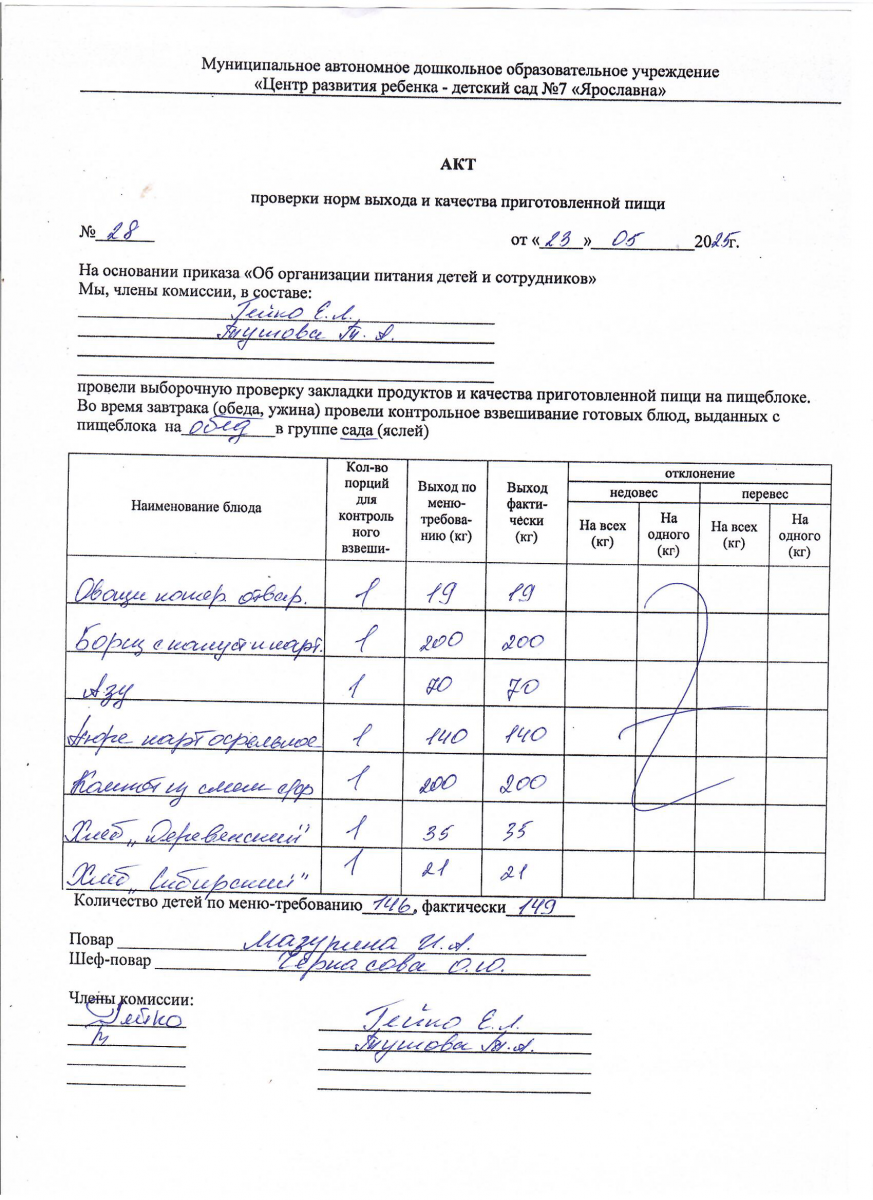 Муниципальное автономное дошкольное образовательное учреждение
«Центр развития ребенка - детский сад №7 «Ярославна»
АКТ
проверки норм выхода и качества приготовленной пищи
№ 28 от « 23 » 05 2025г.
На основании приказа «Об организации питания детей и сотрудников»
Мы, члены комиссии, в составе:
Гейко Е.Л.
Тушова Т.А.
провели выборочную проверку закладки продуктов и качества приготовленной пищи на пищеблоке.
Во время завтрака (обеда, ужина) провели контрольное взвешивание готовых блюд, выданных с
пищеблока на обед в группе сада (яслей)
Наименование блюда
Кол-во порций для контроль ного взвеши-
Выход по меню-требова-нию (кг)
Выход факти-чески (кг)
отклонение
недовес перевес
На всех (кг) На одного (кг) На всех (кг) На одного (кг)
Овощи помер. отвар. 1 19 19
Борщ с капуст и карт. 1 200 200
Азу 1 70 70
Пюре картофельное 1 140 140
Компот из смеси с/фр 1 200 200
Хлеб „Деревенский" 1 35 35
Хлеб „Сибирский" 1 21 21
Количество детей по меню-требованию 146, фактически 149
Повар Мазурина И.А.
Шеф-повар Черкасова О.Ю.
Члены комиссии:
Гейко Гейко Е.Л.
Тушова Т.А.